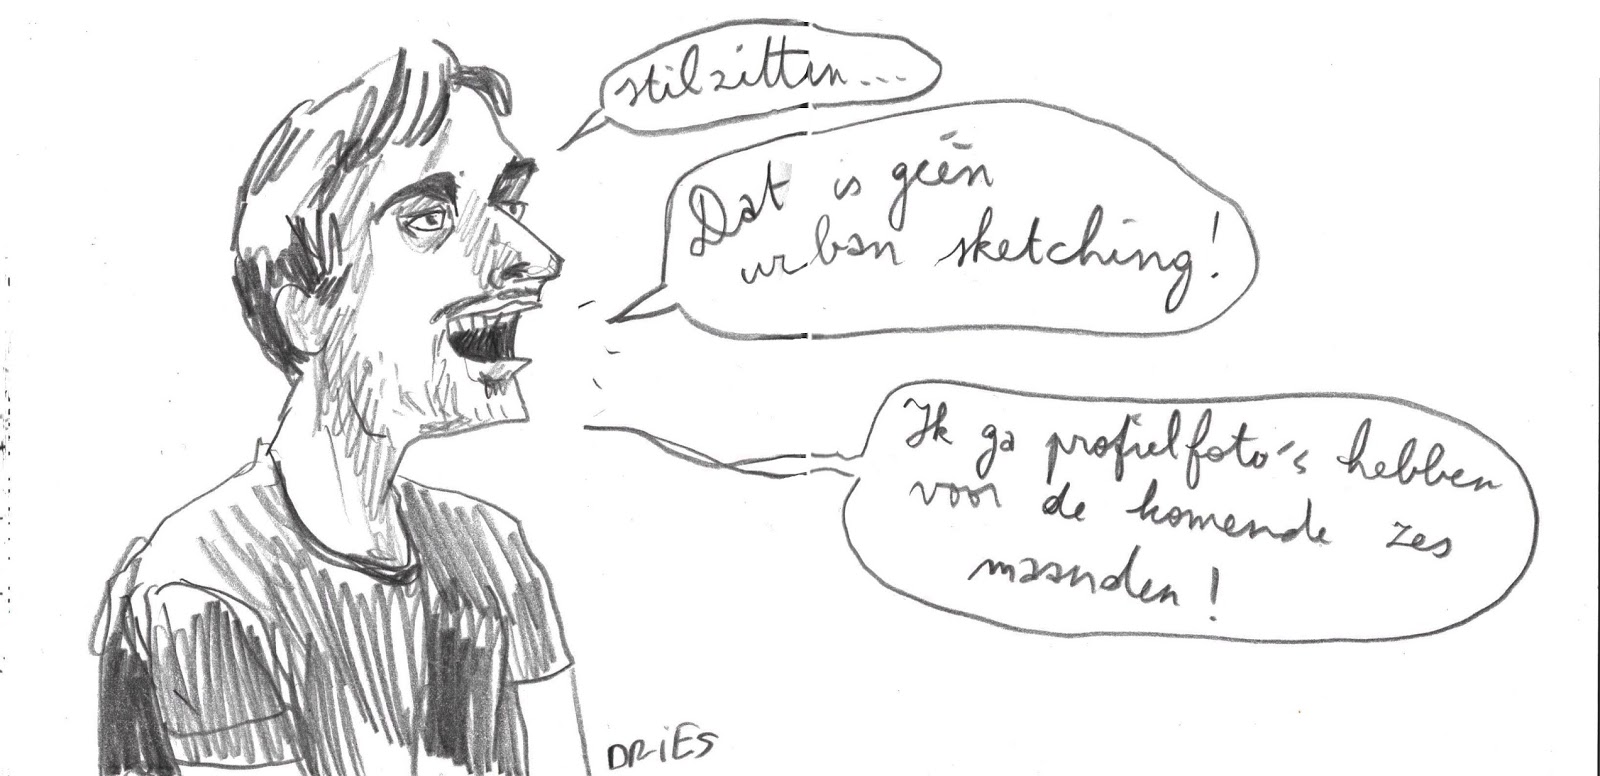 stilzitten...
Dat is géén
urban sketching!
Ik ga profielfoto's hebben
voor de komende zes
maanden!
DRiES